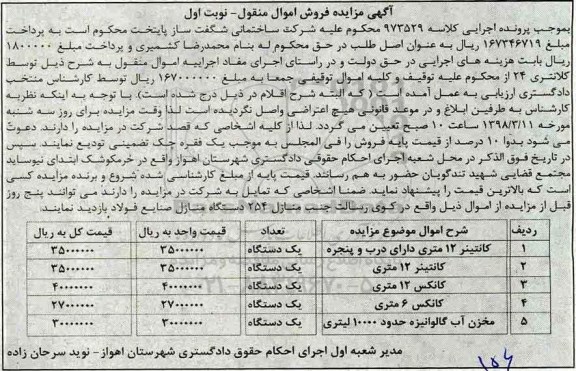 آگهی مزایده فروش اموال منقول- نوبت اول
بموجب پرونده اجرایی کلاسه ۹۷۳۵۲۹ محکوم علیه شرکت ساختمانی شگفت ساز پایتخت محکوم است به پرداخت
مبلغ ۱۶۷۳۴۶۷۱۹ ریال به عنوان اصل طلب در حق محکوم له بنام محمدرضا کشمیری و پرداخت مبلغ ۱۸۰۰۰۰۰
ریال بابت هزینه های اجرایی در حق دولت و در راستای اجرای مفاد اجراییه اموال منقول به شرح ذیل توسط
کلانتری ۲۴ از محکوم علیه توقیف و کلیه اموال توقیفی جمعا به مبلغ ۱۶۷۰۰۰۰۰۰ ریال توسط کارشناس منتخب
دادگستری ارزیابی به عمل آمده است ( که البته شرح اقلام در ذیل درج شده است). با توجه به اینکه نظریه
کارشناس به طرفین ابلاغ و در موعد قانونی هیچ اعتراضی واصل نگردیده است لذا وقت مزایده برای روز سه شنبه
مورخه ۱۳۹۸/۳/۱۱ ساعت ۱۰ صبح تعیین می گردد. لذا از کلیه اشخاصی که قصد شرکت در مزایده را دارند. دعوت
می شود بدوا ۱۰ درصد از قیمت پایه فروش را فی المجلس به موجب یک فقره چک تضمینی تودیع نمایند. سپس
در تاریخ فوق الذکر در محل شعبه اجرای احکام حقوقی دادگستری شهرستان اهواز واقع در خرمکوشک ابتدای نیوساید
مجتمع قضایی شهید تندگویان حضور به هم رسانند. قیمت پایه از مبلغ کارشناسی شده شروع و برنده مزایده کسی
است که بالاترین قیمت را پیشنهاد نماید. ضمنا اشخاصی که تمایل به شرکت در مزایده را دارند می توانند پنج روز
قبل از مزایده از اموال ذیل واقع در کوی رسالت جنب منازل ۲۵۴ دستگاه منازل صنایع فولاد بازدید نمایند.
ردیف شرح اموال موضوع مزایده تعداد قیمت واحد به ریال قیمت کل به ریال
۱ کانتینر ۱۲ متری دارای درب و پنجره یک دستگاه ۳۵۰۰۰۰۰۰ ۳۵۰۰۰۰۰۰
۲ کانتینر ۱۲ متری یک دستگاه ۳۵۰۰۰۰۰۰ ۳۵۰۰۰۰۰۰
۳ کانکس ۱۲ متری یک دستگاه ۴۰۰۰۰۰۰۰ ۴۰۰۰۰۰۰۰
۴ کانکس ۶ متری یک دستگاه ۲۷۰۰۰۰۰۰ ۲۷۰۰۰۰۰۰
۵ مخزن آب گالوانیزه حدود ۱۰۰۰۰ لیتری یک دستگاه ۳۰۰۰۰۰۰۰ ۳۰۰۰۰۰۰۰
مدیر شعبه اول اجرای احکام حقوق دادگستری شهرستان اهواز- نوید سرحان زاده